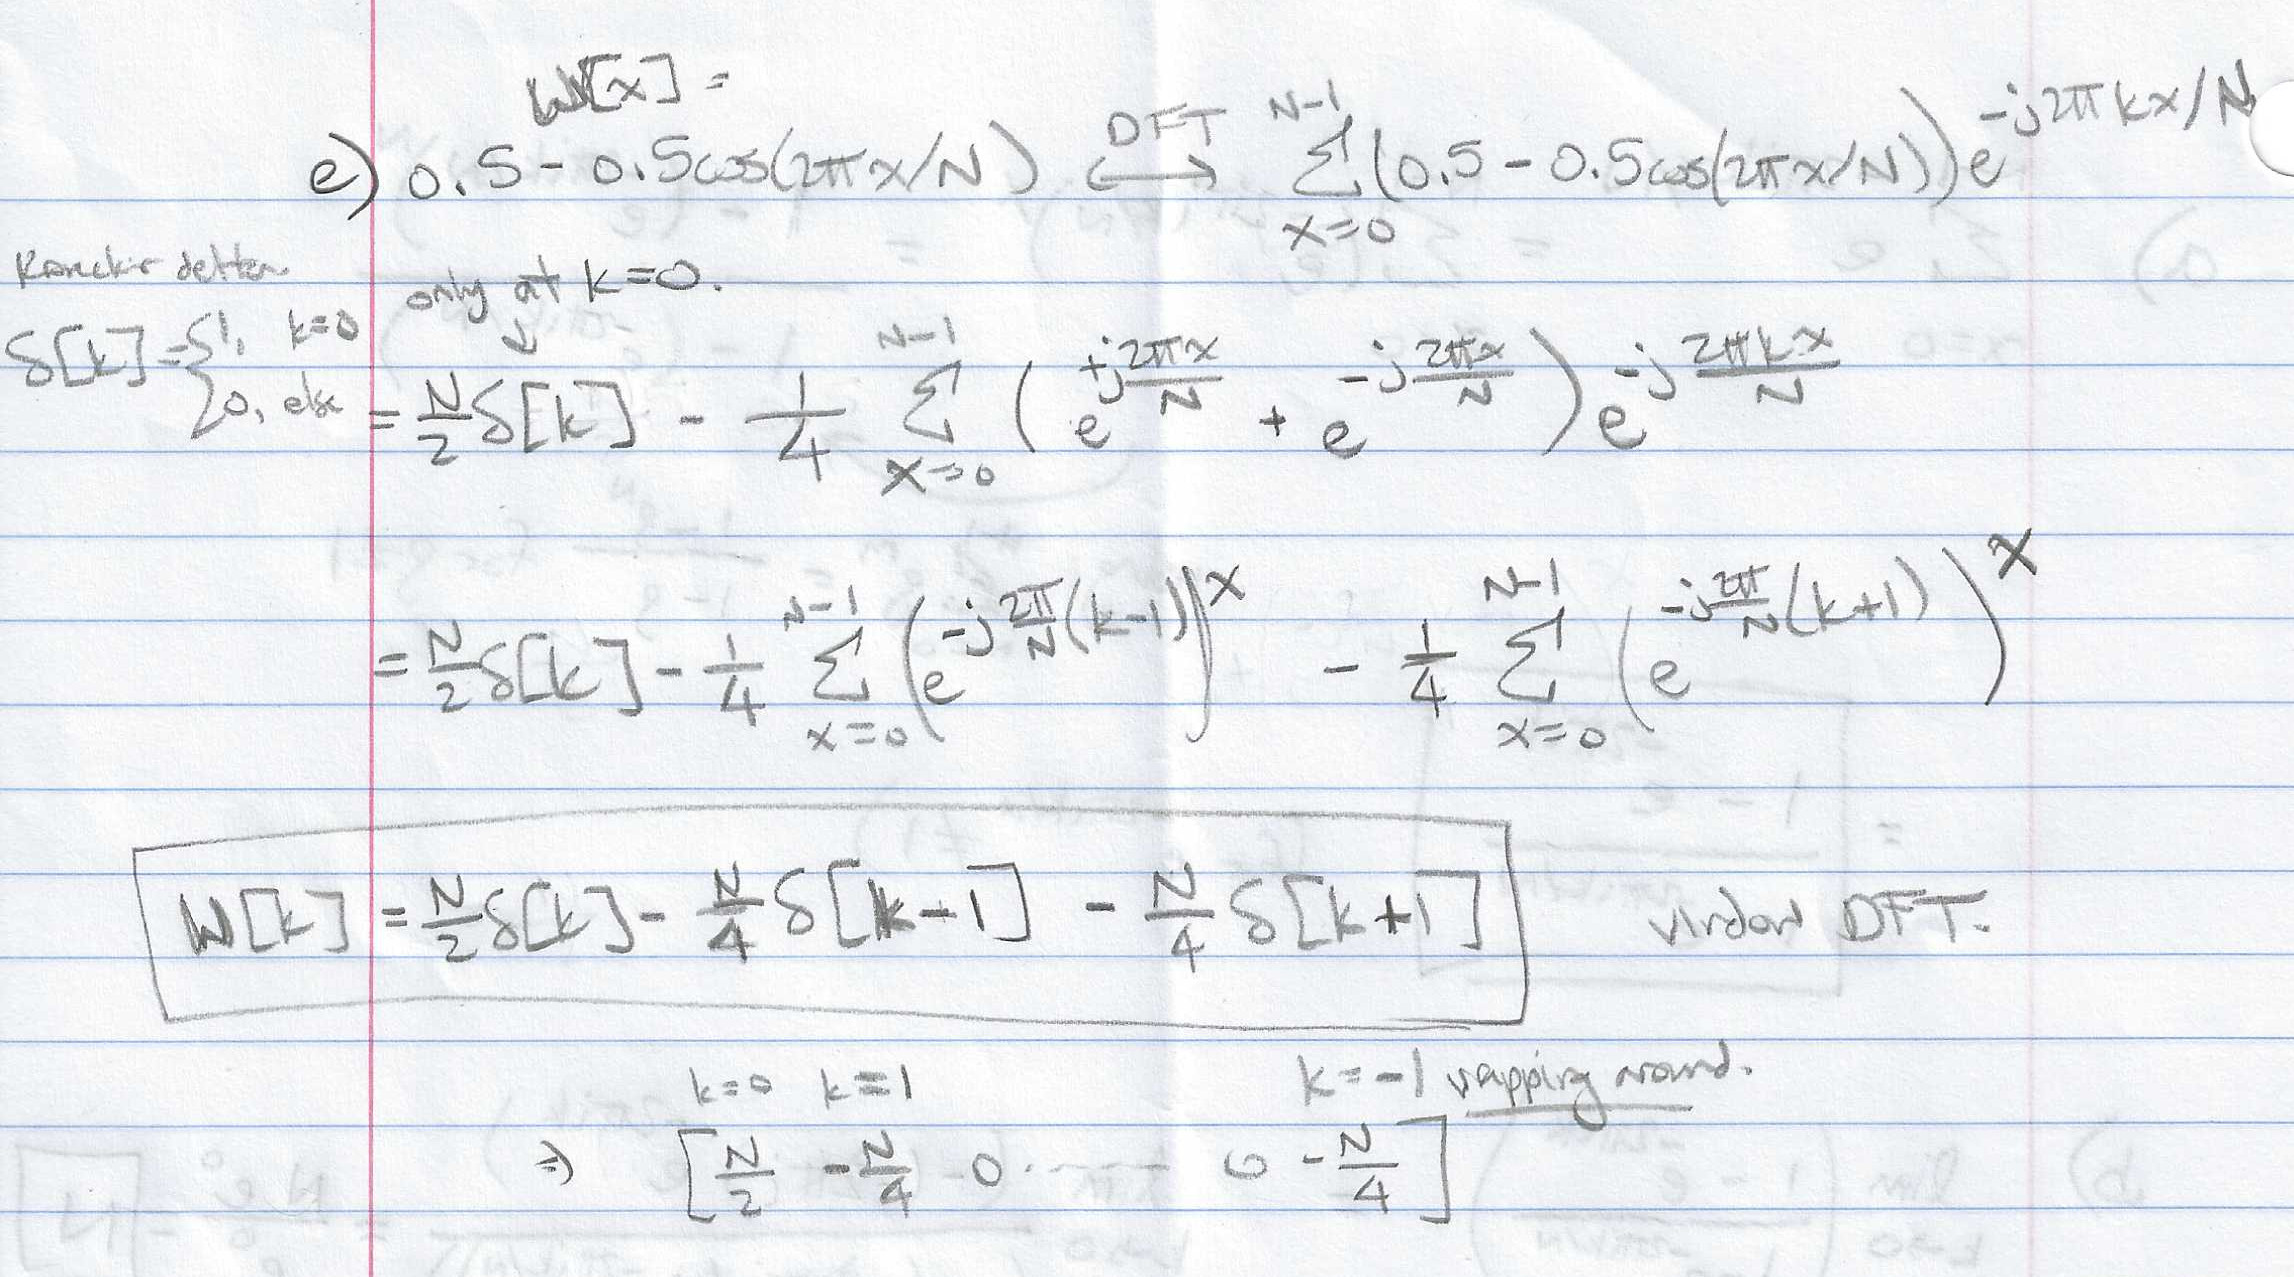 W[x] =
e) 0.5 - 0.5cos(2πx/N) ⟷DFT Σ_{x=0}^{N-1} (0.5 - 0.5cos(2πx/N)) e^{-j2πkx/N}
Kronecker delta
δ[k] = { 1, k=0
0, else
only at k=0.
↓
= N/2 δ[k] - 1/4 Σ_{x=0}^{N-1} ( e^{+j 2πx/N} + e^{-j 2πx/N} ) e^{-j 2πkx/N}
= N/2 δ[k] - 1/4 Σ_{x=0}^{N-1} (e^{-j 2π/N (k-1)})^x - 1/4 Σ_{x=0}^{N-1} (e^{-j 2π/N (k+1)})^x
W[k] = N/2 δ[k] - N/4 δ[k-1] - N/4 δ[k+1] window DFT.
k=0 k=1 k=-1 wrapping around.
⇒ [ N/2 -N/4 0 ..... 0 -N/4 ]